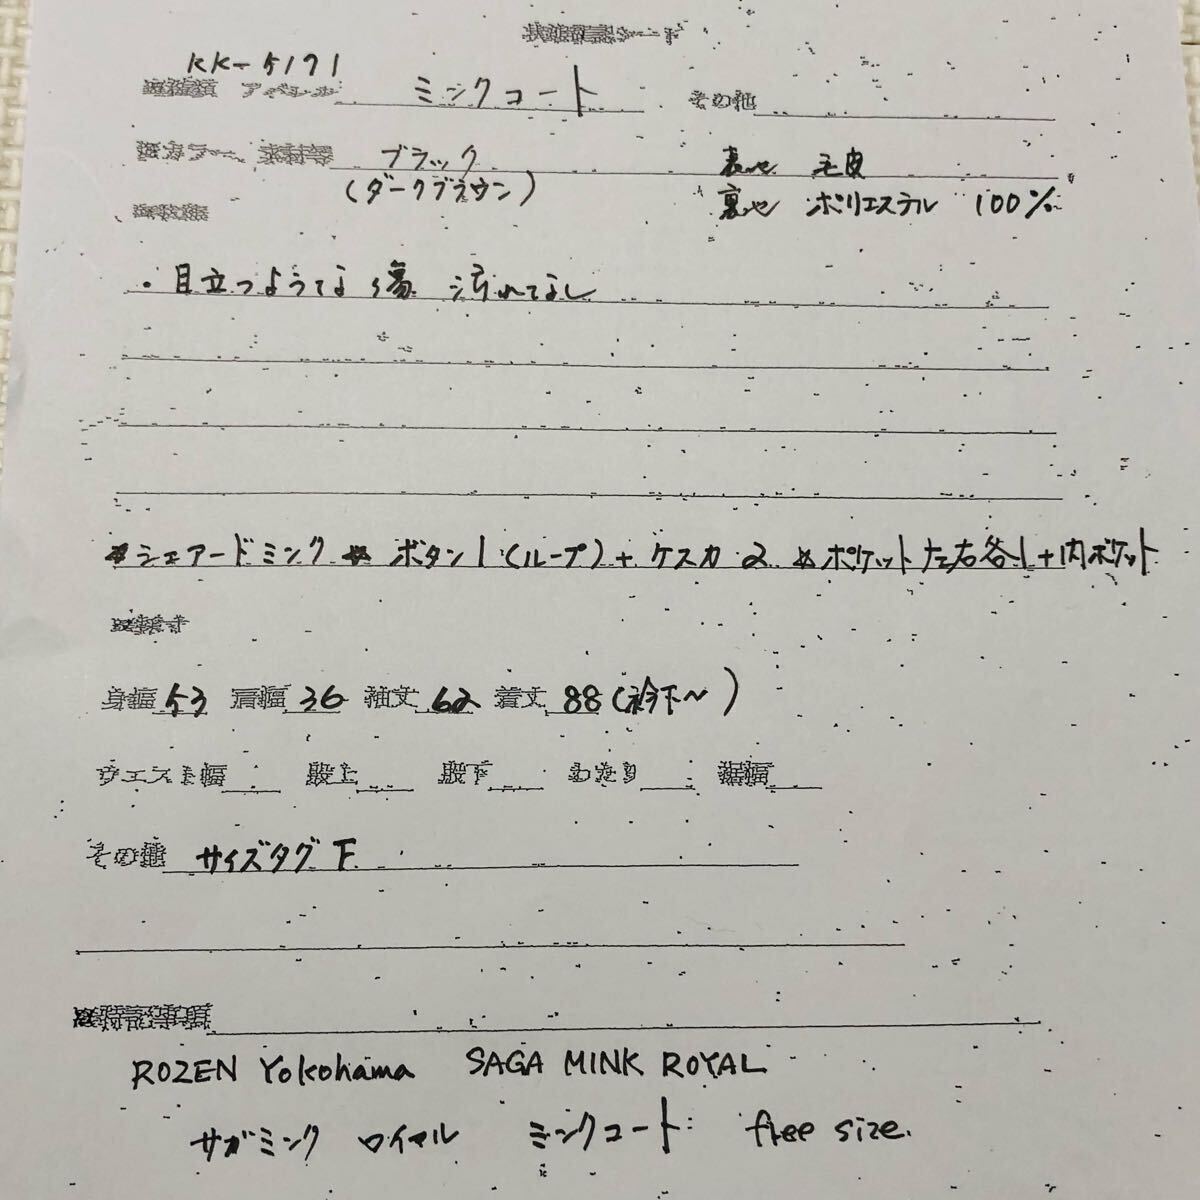 状態確認シート
KK-5171
※種類 アパレル ミンクコート その他
※カラー、素材等 ブラック 表地 毛皮
(ダークブラウン) 裏地 ポリエステル 100%
※状態
・目立つような傷 汚れてなし
*シェアードミンク *ボタン1(ループ)+ケスカ2 *ポケット左右各1+内ポケット
※採寸
身幅 53 肩幅 36 袖丈 62 着丈 88(衿下~)
ウエスト幅 股上 股下 わたり 裾幅
その他 サイズタグ F
※特記事項
ROZEN Yokohama SAGA MINK ROYAL
サガミンク ロイヤル ミンクコート free size.